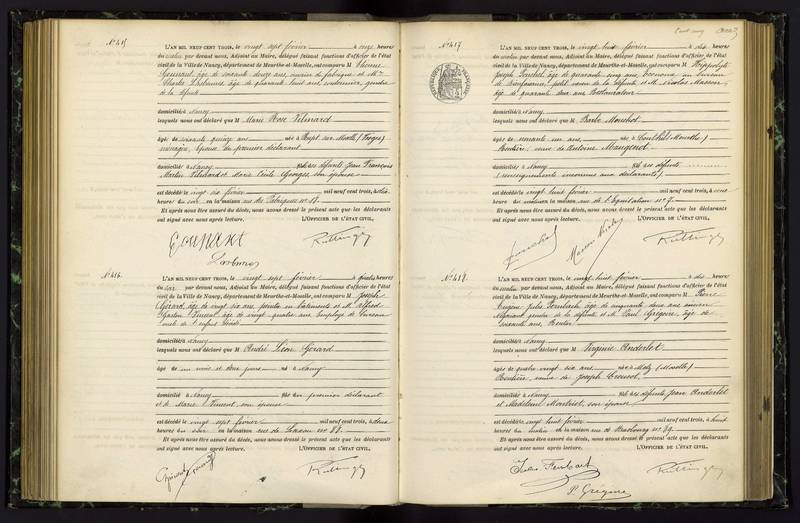 N° 415
L'AN MIL NEUF CENT TROIS, le vingt sept février à onze heures
du matin par devant nous, Adjoint au Maire, délégué faisant fonctions d'officier de l'état
civil de la Ville de Nancy, département de Meurthe-et-Moselle, ont comparu M Etienne
âgé de soixante douze ans, ouvrier de fabrique et M
Charles âgé de quarante huit ans, cordonnier, gendre
de la défunte
domiciliés à Nancy
lesquels nous ont déclaré que M Marie Rose Vilmard
âgée de soixante quinze ans née à Rupt sur Moselle (Vosges)
ménagère, épouse du premier déclarant
domiciliée à Nancy fille des défunts Jean François
Martin Vilmard et Marie Cécile Georges son épouse
est décédée le vingt six février mil neuf cent trois, à dix
heures du soir en la maison rue des Fabriques n° 17.
Et après nous être assuré du décès, nous avons dressé le présent acte que les déclarants
ont signé avec nous après lecture. L'OFFICIER DE L'ÉTAT CIVIL,
N° 416
L'AN MIL NEUF CENT TROIS, le vingt sept février à quatre heures
du soir par devant nous, Adjoint au Maire, délégué faisant fonctions d'officier de l'état
civil de la Ville de Nancy, département de Meurthe-et-Moselle, ont comparu M Joseph
Gérard, âgé de vingt six ans, peintre en bâtiments et M. Alfred
Gaston Vincent âgé de vingt quatre ans employé de bureau
oncle de l'enfant décédé
domiciliés à Nancy
lesquels nous ont déclaré que M André Léon Gérard
âgé de un mois et deux jours né à Nancy
domicilié à Nancy fils du premier déclarant
et de Marie Vincent, son épouse
est décédé le vingt sept février mil neuf cent trois, à deux
heures du soir en la maison rue de
Et après nous être assuré du décès, nous avons dressé le présent acte que les déclarants
ont signé avec nous après lecture. L'OFFICIER DE L'ÉTAT CIVIL,
N° 417
L'AN MIL NEUF CENT TROIS, le vingt huit février à dix heures
du matin par devant nous, Adjoint au Maire, délégué faisant fonctions d'officier de l'état
civil de la Ville de Nancy, département de Meurthe-et-Moselle, ont comparu M Hippolyte
Joseph âgé de quarante cinq ans, Econome au bureau
de bienfaisance, petit cousin de la défunte et M. Nicolas Masson
âgé de quarante deux ans Restaurateur
domiciliés à Nancy
lesquels nous ont déclaré que M Barbe Mouchot
âgée de soixante un ans, née à (Meurthe)
Rentière, veuve de Antoine Mangenot
domiciliée à Nancy fille des défunts
(renseignements inconnus aux déclarants)
est décédée le vingt huit février mil neuf cent trois, à
heures du matin en la maison rue de l'Equitation n° 7.
Et après nous être assuré du décès, nous avons dressé le présent acte que les déclarants
ont signé avec nous après lecture. L'OFFICIER DE L'ÉTAT CIVIL,
N° 418
L'AN MIL NEUF CENT TROIS, le vingt huit février à dix heures
du matin par devant nous, Adjoint au Maire, délégué faisant fonctions d'officier de l'état
civil de la Ville de Nancy, département de Meurthe-et-Moselle, ont comparu M Pierre
Eugène Jules âgé de cinquante deux ans ancien
Négociant gendre de la défunte et M. Paul Grégoire, âgé de
soixante ans, Rentier
domiciliés à Nancy
lesquels nous ont déclaré que M Virginie Anderlet
âgée de quatre vingt six ans née à Metz (Moselle)
Rentière, veuve de Joseph
domiciliée à Nancy fille des défunts Jean Anderlet
et Madeleine son épouse
est décédée le vingt huit février mil neuf cent trois, à huit
heures du matin en la maison rue de Strasbourg n° 89.
Et après nous être assuré du décès, nous avons dressé le présent acte que les déclarants
ont signé avec nous après lecture. L'OFFICIER DE L'ÉTAT CIVIL,
P. Grégoire